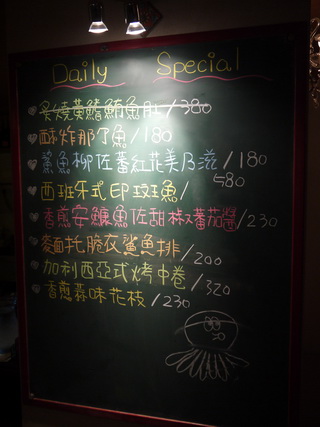 Daily Special
炙燒黃鰭鮪魚肚/380
酥炸那个魚/180
鱼柳佐蕃紅花美乃滋/180
西班牙式印斑魚/580
香煎安鱇魚佐甜椒蕃茄醬/230
麵托脆衣鯊魚排/200
加利西亞式烤中卷/320
香煎蒜味花枝/230